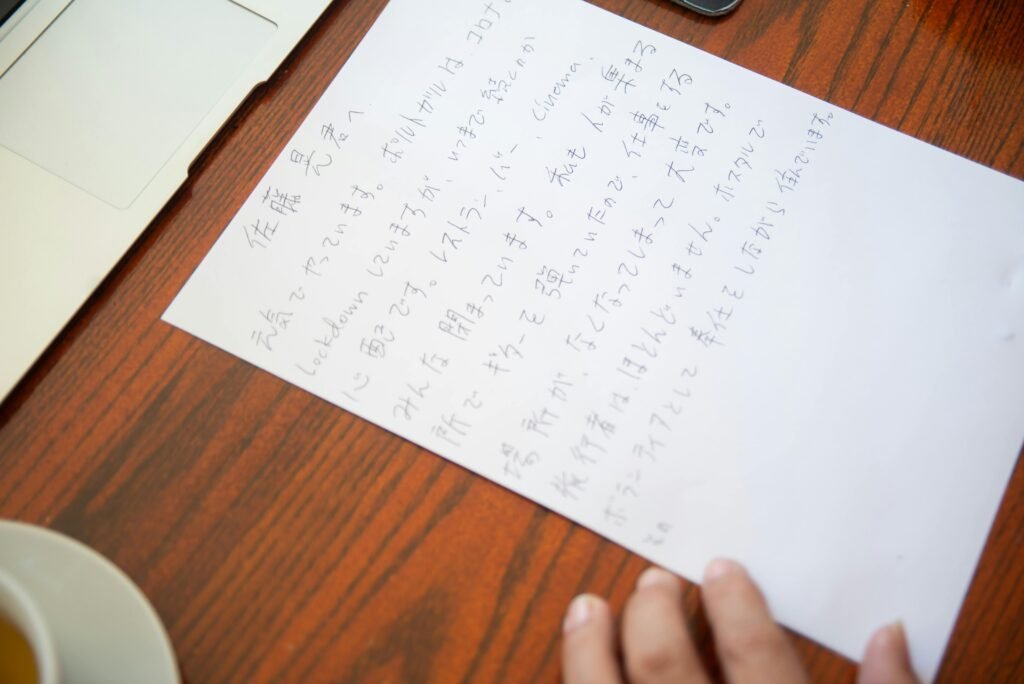 佐藤 晃 君へ
元気でやっています。ポルトガルは、コロナで
Lockdownしていますが、いつまで続くのか
心配です。レストラン、バー、cinema.
みんな閉まっています。私も人が集まる
所でギターを弾いていたので、仕事をする
場所が、なくなってしまって大変です。
旅行者はほとんどいません。ホスタルで
ボランティアとして奉仕をしながら住んでいます。